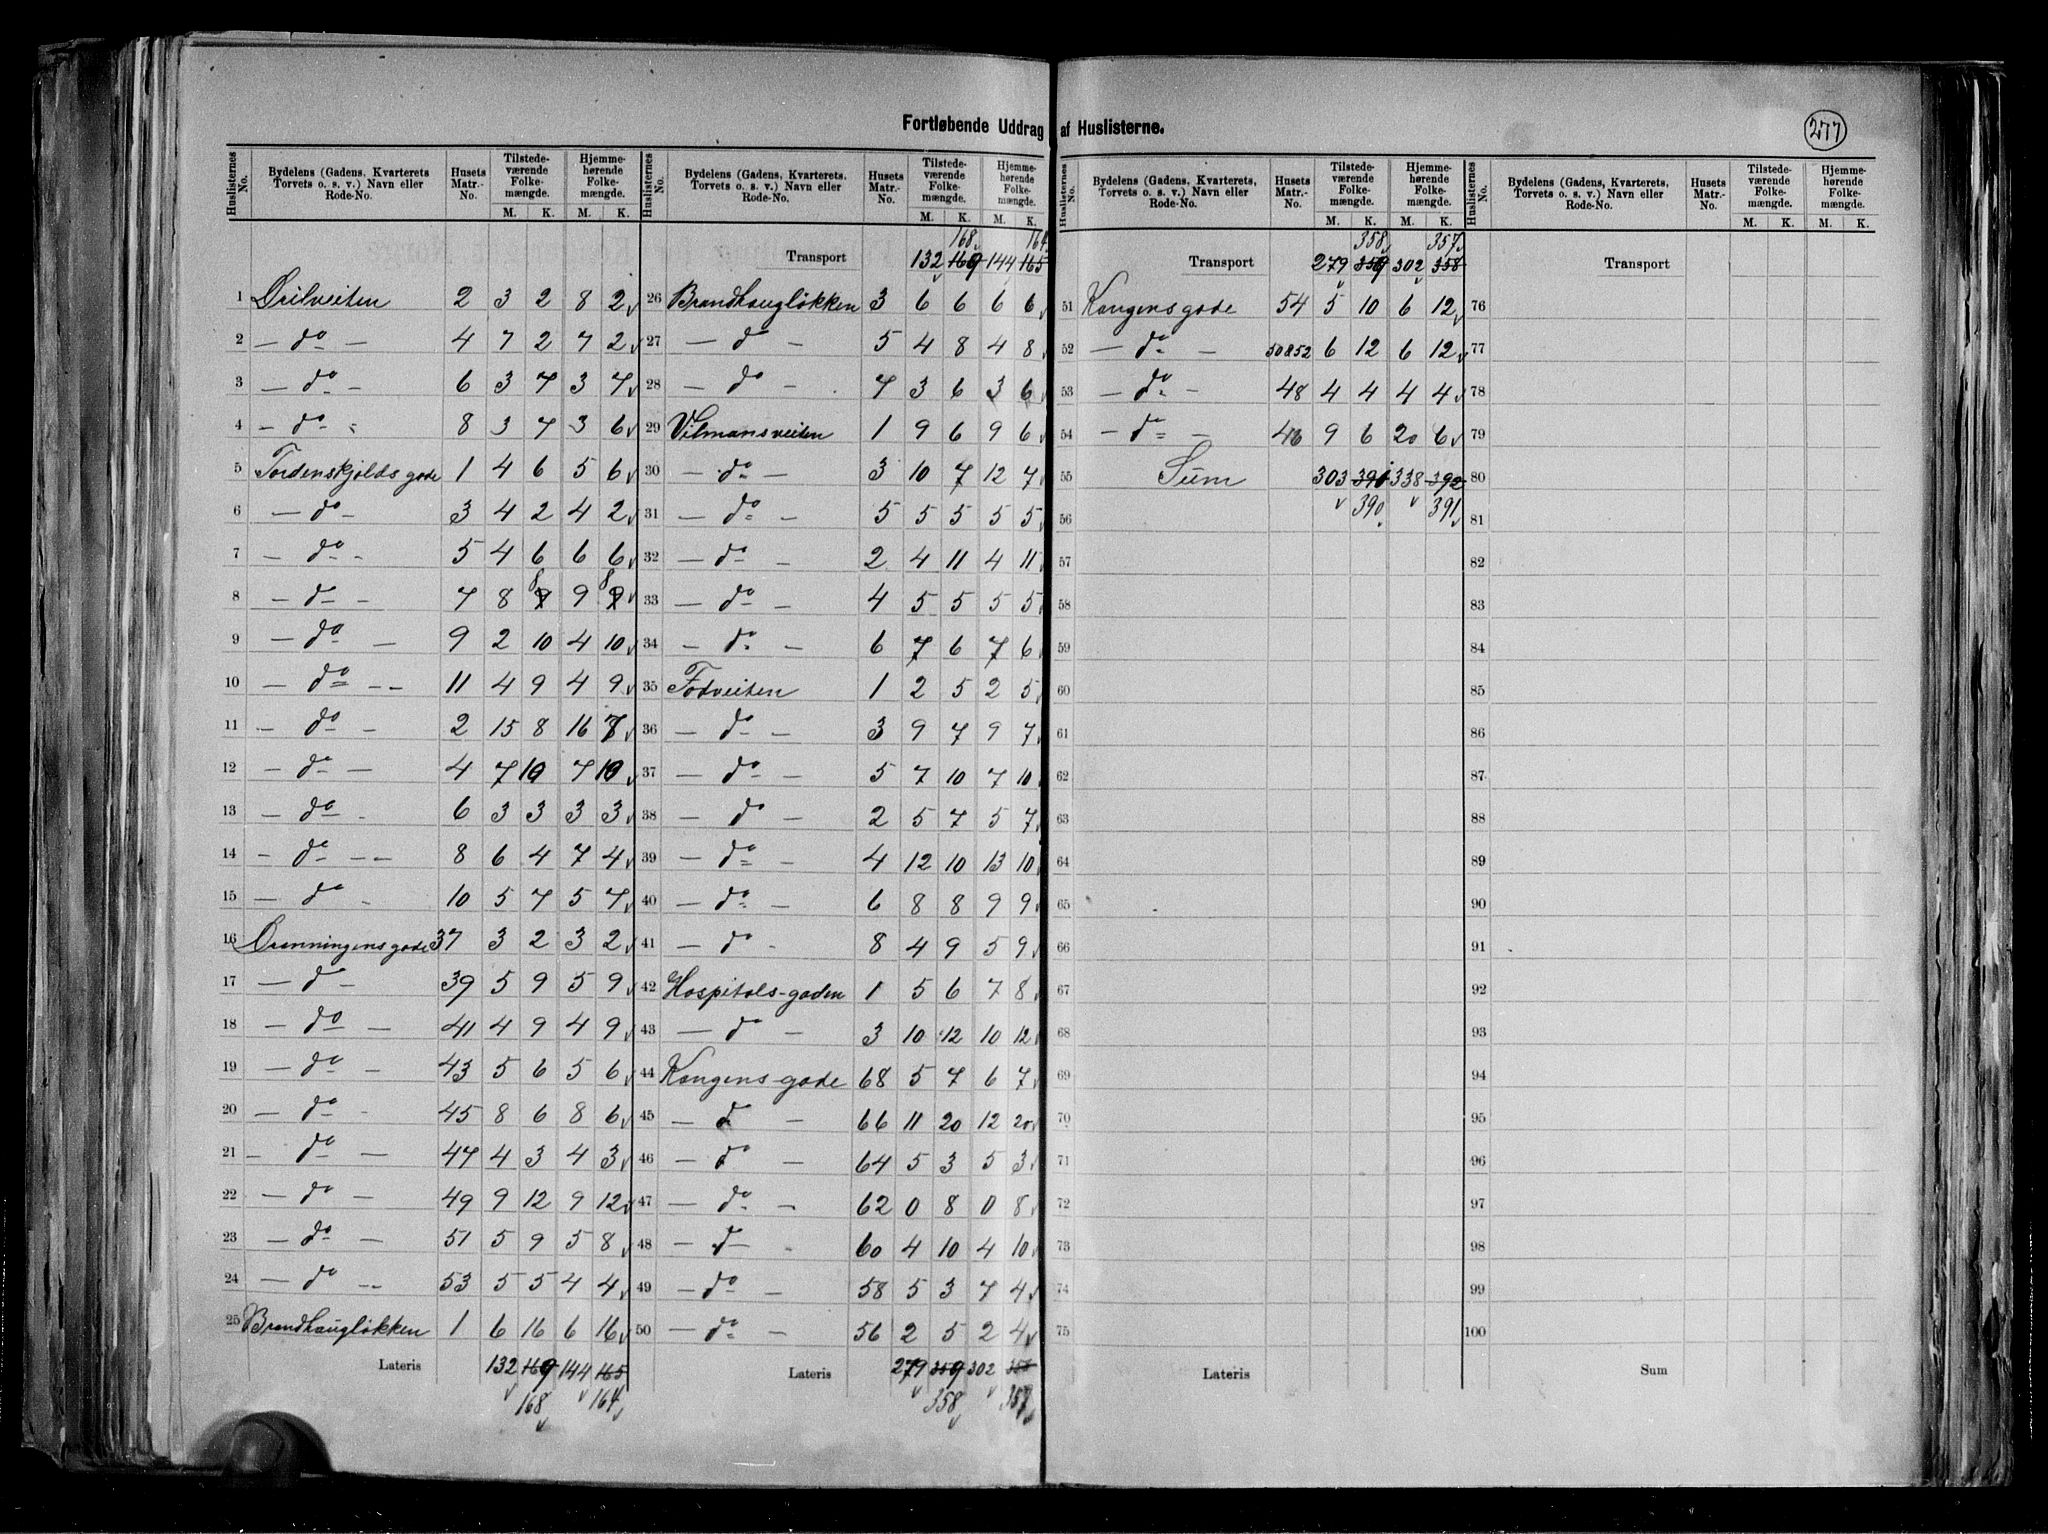 Fortløbende Uddrag af Huslisterne.
277
Huslisternes No. | Bydelens (Gadens, Kvarterets Torvets o. s. v.) Navn eller Rode-No. | Husets Matr.-No. | Tilstedeværende Folkemængde. M. K. | Hjemmehørende Folkemængde. M. K.
1 Ørilveiten 2 3 2 8 2
2 — do — 4 7 2 7 2
3 — do - 6 3 7 3 7
4 - do - 8 3 7 3 6
5 Tordenskjolds gade 1 4 6 5 6
6 — do - 3 4 2 4 2
7 — do - 5 4 6 6 6
8 — do — 7 8 8 9 8
9 — do — 9 2 10 4 10
10 — do -- 11 4 9 4 9
11 — do - 2 15 8 16 7
12 — do — 4 7 10 7 10
13 — do - 6 3 3 3 3
14 - do -- 8 6 4 7 4
15 — do - 10 5 7 5 7
16 Dronningens gade 37 3 2 3 2
17 — do - 39 5 9 5 9
18 — do — 41 4 9 4 9
19 — do — 43 5 6 5 6
20 — do - 45 8 6 8 6
21 - do — 47 4 3 4 3
22 — do — 49 9 12 9 12
23 — do — 51 5 9 5 8
24 — do -- 53 5 5 4 4
25 Brandhaugløkken 1 6 16 6 16
Lateris 132 169 144 165
168 164
Huslisternes No. | Bydelens (Gadens, Kvarterets, Torvets o. s. v.) Navn eller Rode-No. | Husets Matr.-No. | Tilstedeværende Folkemængde. M. K. | Hjemmehørende Folkemængde. M. K.
168 164
Transport 132 169 144 165
26 Brandhaugløkken 3 6 6 6 6
27 — do - 5 4 8 4 8
28 — do - 7 3 6 3 6
29 Vilmansveiten 1 9 6 9 6
30 — do — 3 10 7 12 7
31 — do — 5 5 5 5 5
32 — do — 2 4 11 4 11
33 — do — 4 5 5 5 5
34 — do — 6 7 6 7 6
35 Fodveiten 1 2 5 2 5
36 — do — 3 9 7 9 7
37 — do — 5 7 10 7 10
38 — do — 2 5 7 5 7
39 — do — 4 12 10 13 10
40 — do — 6 8 8 9 9
41 — do - 8 4 9 5 9
42 Hospitals-gaden 1 5 6 7 8
43 — do — 3 10 12 10 12
44 Kongens-gade 68 5 7 6 7
45 — do — 66 11 20 12 20
46 — do — 64 5 3 5 3
47 — do — 62 0 8 0 8
48 — do - 60 4 10 4 10
49 — do — 58 5 3 7 4
50 — do — 56 2 5 2 4
Lateris 279 359 302 358
358 357
Huslisternes No. | Bydelens (Gadens, Kvarterets, Torvets o. s. v.) Navn eller Rode-No. | Husets Matr.-No. | Tilstedeværende Folkemængde. M. K. | Hjemmehørende Folkemængde. M. K.
358 357
Transport 279 359 302 358
51 Kongensgade 54 5 10 6 12
52 — do — 50&52 6 12 6 12
53 — do - 48 4 4 4 4
54 — do — 46 9 6 20 6
55 Sum 303 391 338 392
56 390 391
57
58
59
60
61
62
63
64
65
66
67
68
69
70
71
72
73
74
75
Lateris
Huslisternes No. | Bydelens (Gadens, Kvarterets, Torvets o. s. v.) Navn eller Rode-No. | Husets Matr.-No. | Tilstedeværende Folkemængde. M. K. | Hjemmehørende Folkemængde. M. K.
Transport
76
77
78
79
80
81
82
83
84
85
86
87
88
89
90
91
92
93
94
95
96
97
98
99
100
Sum